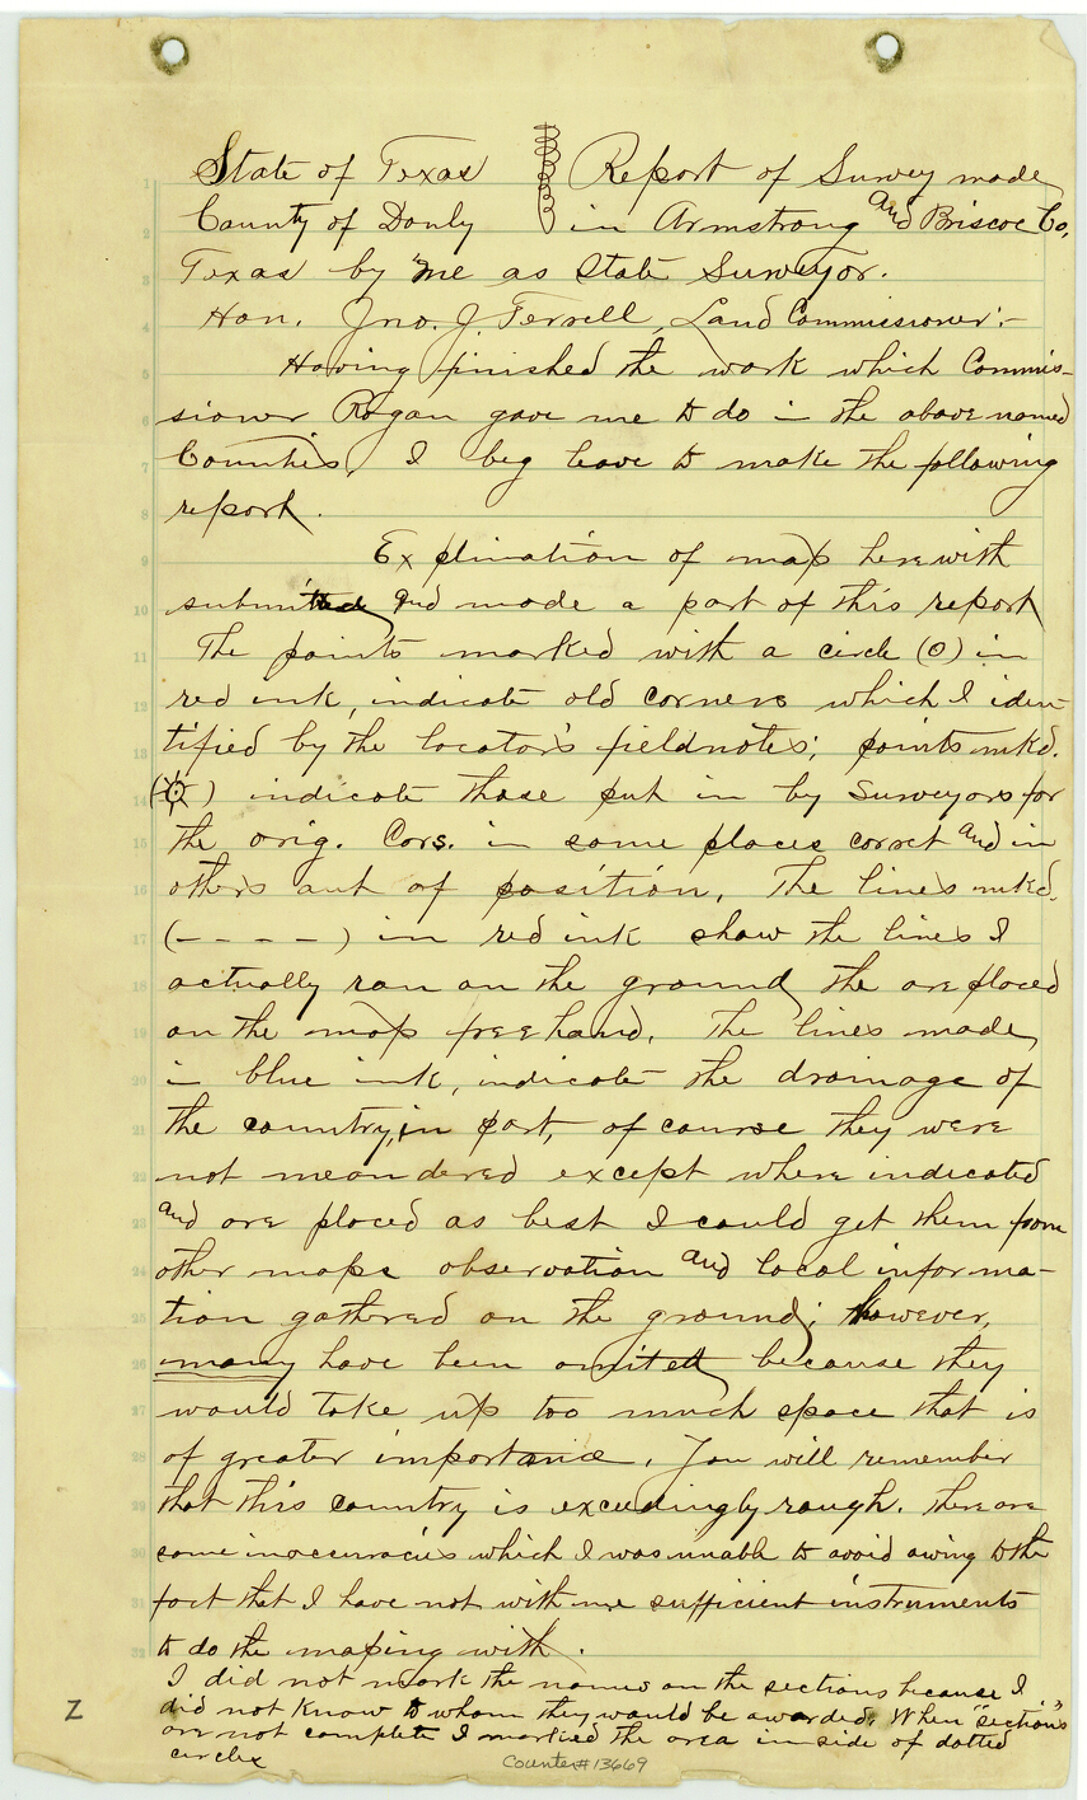 State of Texas Report of Survey made
County of Donly in Armstrong and Briscoe Co,
Texas by me as State Surveyor.
Hon. Jno. J. Terrell, Land Commissioner:-
Having finished the work which Commis-
sioner Rogan gave me to do in the above named
Counties, I beg leave to make the following
report.
Explination of map herewith
submitted and made a part of this report
The points marked with a circle (O) in
red ink, indicate old corners which I iden-
tified by the locator's fieldnotes; points mkd.
( ) indicate those put in by Surveyors for
the orig. Cors. in some places corret and in
others out of position. The lines mkd.
(- - - -) in red ink show the lines I
actually ran on the ground, the are placed
on the map free hand. The lines made
in blue ink, indicate the drainage of
the country, in part, of course they were
not meandered except where indicated
and are placed as best I could get them from
other maps observation and local informa-
tion gathered on the ground; however,
many have been omitted because they
would take up too much space that is
of greater importance. You will remember
that this country is exceedingly rough. There are
some inaccuracies which I was unable to avoid owing to the
fact that I have not with me sufficient instruments
to do the maping with.
I did not mark the names on the sections because I
did not know to whom they would be awarded. When "sections"
are not complete I marked the area inside of dotted
circles
Z
Counter# 13669
1
2
3
4
5
6
7
8
9
10
11
12
13
14
15
16
17
18
19
20
21
22
23
24
25
26
27
28
29
30
31
32